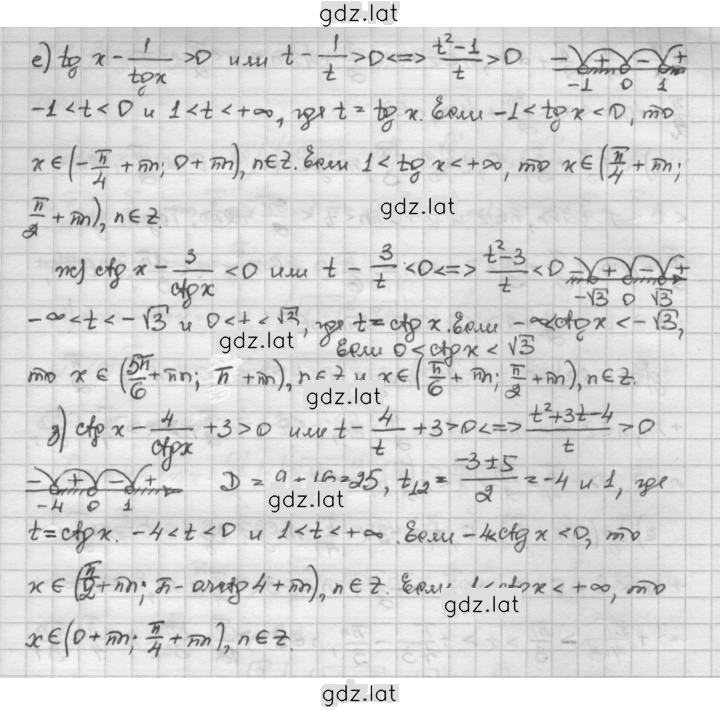 gdz.lat
е) tg x - 1/tgx >0 или t - 1/t >0<=> t²-1/t >0 - + - + -1 0 1
-1<t<0 и 1<t<+∞, где t = tg x. Если -1<tg x<0, то
x∈(-π/4 + πn; 0+πn), n∈Z. Если 1<tg x<+∞, то x∈(π/4 + πn;
π/2 + πn), n∈Z. gdz.lat
ж) ctg x - 3/ctgx <0 или t - 3/t <0<=> t²-3/t <0 - + - + -√3 0 √3
-∞<t<-√3 и 0<t<√3, где t=ctg x. Если -∞<ctg x<-√3,
gdz.lat Если 0<ctgx<√3
то x∈(5π/6 + πn; π + πn), n∈Z и x∈(π/6 + πn; π/2 + πn), n∈Z.
gdz.lat
з) ctg x - 4/ctgx +3>0 или t - 4/t +3>0<=> t²+3t-4/t >0
- + - + -4 0 1 D = 9+16=25, t12 = -3±5/2 = -4 и 1, где
gdz.lat
t=ctg x. -4<t<0 и 1<t<+∞. Если -4<ctg x<0, то
x∈(π/2+πn; π-arcctg 4+πn), n∈Z. Если 1<ctgx<+∞, то
gdz.lat
x∈(0+πn; π/4+πn), n∈Z.
gdz.lat